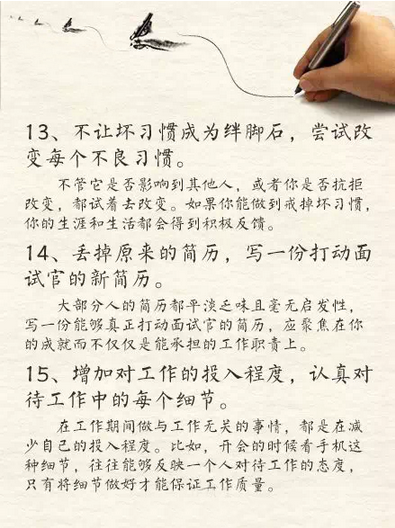 13、不让坏习惯成为绊脚石，尝试改
变每个不良习惯。
不管它是否影响到其他人，或者你是否抗拒
改变，都试着去改变。如果你能做到戒掉坏习惯，
你的生涯和生活都会得到积极反馈。
14、丢掉原来的简历，写一份打动面
试官的新简历。
大部分人的简历都平淡乏味且毫无启发性，
写一份能够真正打动面试官的简历，应聚焦在你
的成就而不仅仅是能承担的工作职责上。
15、增加对工作的投入程度，认真对
待工作中的每个细节。
在工作期间做与工作无关的事情，都是在减
少自己的投入程度。比如，开会的时候看手机这
种细节，往往能够反映一个人对待工作的态度，
只有将细节做好才能保证工作质量。